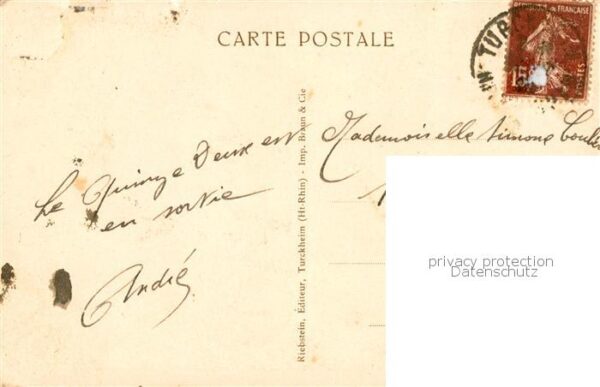 CARTE POSTALE
RÉPUBLIQUE FRANÇAISE
15
POSTES
TUR
Le Quinze Deux est
en sortie
André
Mademoiselle Simone
Riebstein, Éditeur, Turckheim (Ht-Rhin) - Imp. Braun & Cie
privacy protection
Datenschutz